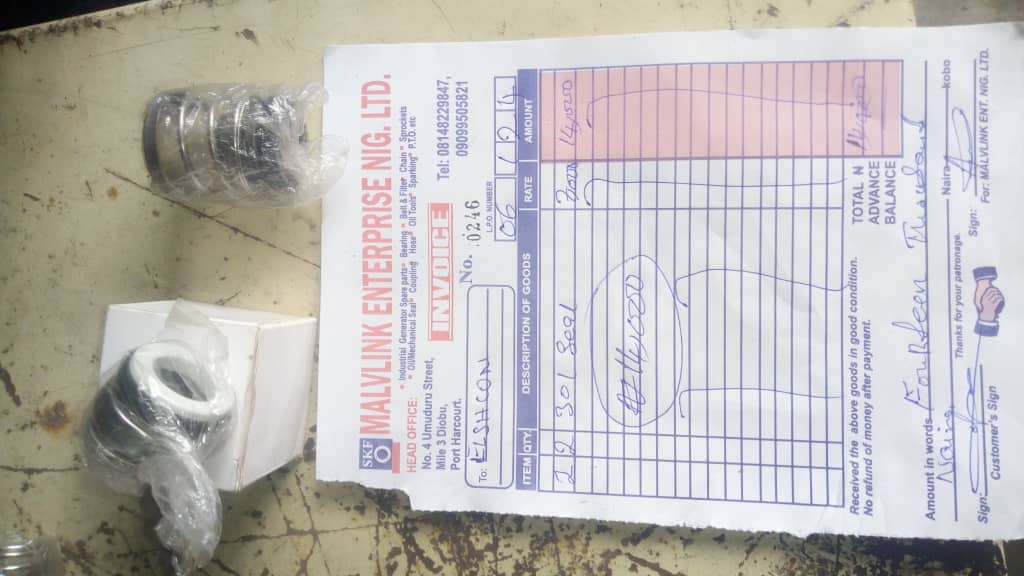 SKF
MALVLINK ENTERPRISE NIG. LTD.
HEAD OFFICE:
* Industrial Generator Spare parts* Bearing * Belt & Filter Chain * Sprockets
* Oil/Mechanical Seal* Coupling Hose* Oil Tools* Sparking* P.T.O. etc
No. 4 Umuduru Street,
Mile 3 Diobu,
Port Harcourt.
INVOICE
Tel: 08148229847,
09099505821
No. 0246
To: ELSHCON
L.P.O. NUMBER
06 12
ITEM QTY DESCRIPTION OF GOODS RATE AMOUNT
2 2 301 Seal 7000 14,000
₦14,000
Received the above goods in good condition.
No refund of money after payment.
TOTAL N 14,000
ADVANCE
BALANCE
Amount in words Fourteen Thousand
Naira Naira kobo
Thanks for your patronage.
Sign: Sign:
Customer's Sign For: MALVLINK ENT. NIG. LTD.